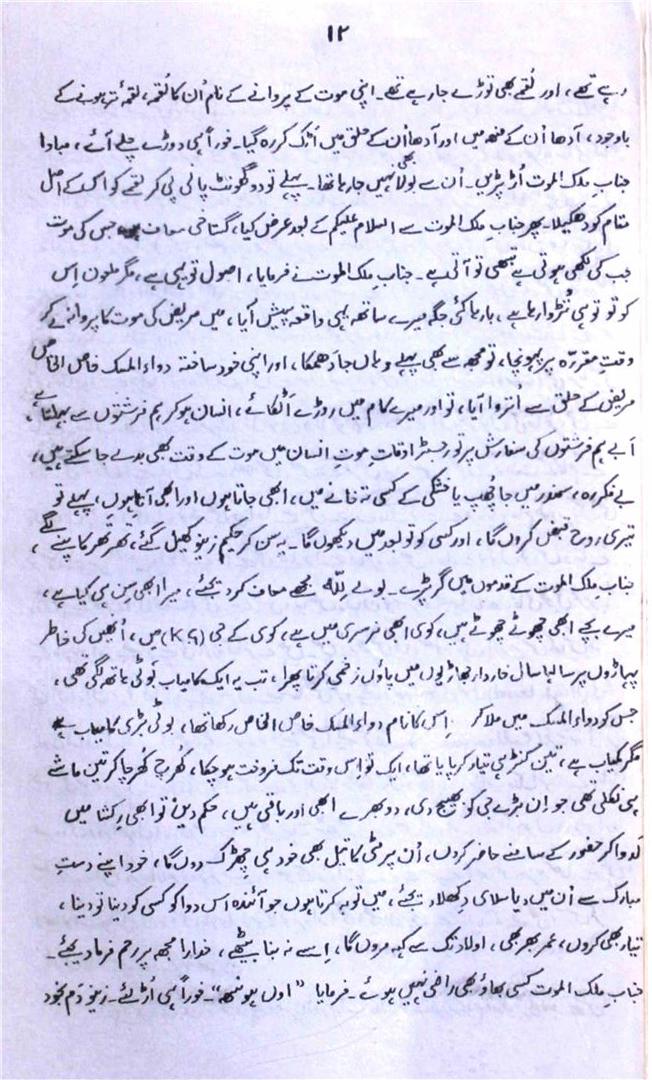 ۱۲
رہے تھے، اور لُقمے بھی توڑے جا رہے تھے۔ اپنی موت کے پروانے کے نام اُن کا لُقمہ، لقمۂ تر ہونے کے
باوجود، آدھا اُن کے منھ میں اور آدھا اُن کے حلق میں اٹک کر رہ گیا۔ فوراً ہی دوڑے چلے آئے، مبادا
جناب ملک الموت اُڑ پڑیں۔ اُن سے بولا بھی نہیں جا رہا تھا۔ پہلے تو دو گھونٹ پانی پی کر لقمے کو اس کے اصل
مقام کو دھکیلا۔ پھر جناب ملک الموت سے السلام علیکم کے بعد عرض کیا، گستاخی معاف جس کی موت
جب کی لکھی ہوتی ہے تبھی تو آتی ہے۔ جناب ملک الموت نے فرمایا، اصول تو یہی ہے، مگر ملعون اِس
کو تو تو ہی تُڑوا رہا ہے، بارہا کئی جگہ میرے ساتھ یہی واقعہ پیش آیا، میں مریض کی موت کا پروانہ لے کر
وقتِ مقررّہ پر پہونچا، تو مجھ سے بھی پہلے وہاں جا دھمکا، اور اپنی خود ساختہ دواء المسک خاص الخاص
مریض کے حلق سے اتروا آیا، تو اور میرے کام میں روڑے اٹکائے، انسان ہو کر ہم فرشتوں سے
اَبے ہم فرشتوں کی سفارش پر تو رجسٹر اوقاتِ موت انسان میں موت کے وقت بھی بدلے جا سکتے ہیں،
بے فکر رہ، سمندر میں جا چُھپ یا خشکی کے کسی تہ خانے میں، ابھی جاتا ہوں اور ابھی آتا ہوں، پہلے تو
تیری روح قبض کروں گا، اور کسی کو تو بعد میں دیکھوں گا۔ یہ سن کر حکیم زینو کھیل گئے، تھر تھر کانپنے لگے،
جناب ملک الموت کے قدموں میں گر پڑے۔ بولے لِلّٰہ مجھے معاف کر دیجئے، میرا ابھی سِن ہی کیا ہے،
میرے بچے ابھی چھوٹے چھوٹے ہیں، کوئی ابھی نرسری میں ہے، کوئی کے جی (K G) میں، اُنھیں کی خاطر
پہاڑوں پر سالہا سال خاردار جھاڑیوں میں پاؤں زخمی کرتا پھرا، تب یہ ایک کامیاب بُوٹی ہاتھ لگی تھی،
جس کو دواء المسک میں ملا کر اِس کا نام دواء المسک خاص الخاص رکھا تھا، بوٹی بڑی کامیاب ہے
مگر کمیاب ہے، تین کنڑ ہی تیار کر پایا تھا، ایک تو اس وقت تک فروخت ہو چکا، کھرچ کُھرچا کر تین ماشے
ہی نکلی تھی جو اِن بڑے جی کو بھیج دی، دو بھرے ابھی اور باقی ہیں، حکم دیں تو ابھی رکشا میں
لدوا کر حضور کے سامنے حاضر کر دوں، اُن پر مٹّی کا تیل بھی خود ہی چِھڑک دوں گا، خود اپنے دستِ
مبارک سے اُن میں دیا سلائی دکھلا دیجئے، میں توبہ کرتا ہوں جو آئندہ اس دوا کو کسی کو دینا تو دینا،
تیار بھی کروں، عمر بھر بھی، اولاد تک سے کہہ مروں گا، اِسے نہ بنا بیٹھے، خدارا مجھ پر رحم فرما دیجئے۔
جناب ملک الموت کسی بھاؤ بھی راضی نہیں ہوئے۔ فرمایا "اوں ہونھ"۔ فوراً ہی اڑ لئے۔ زینو دَم بخود